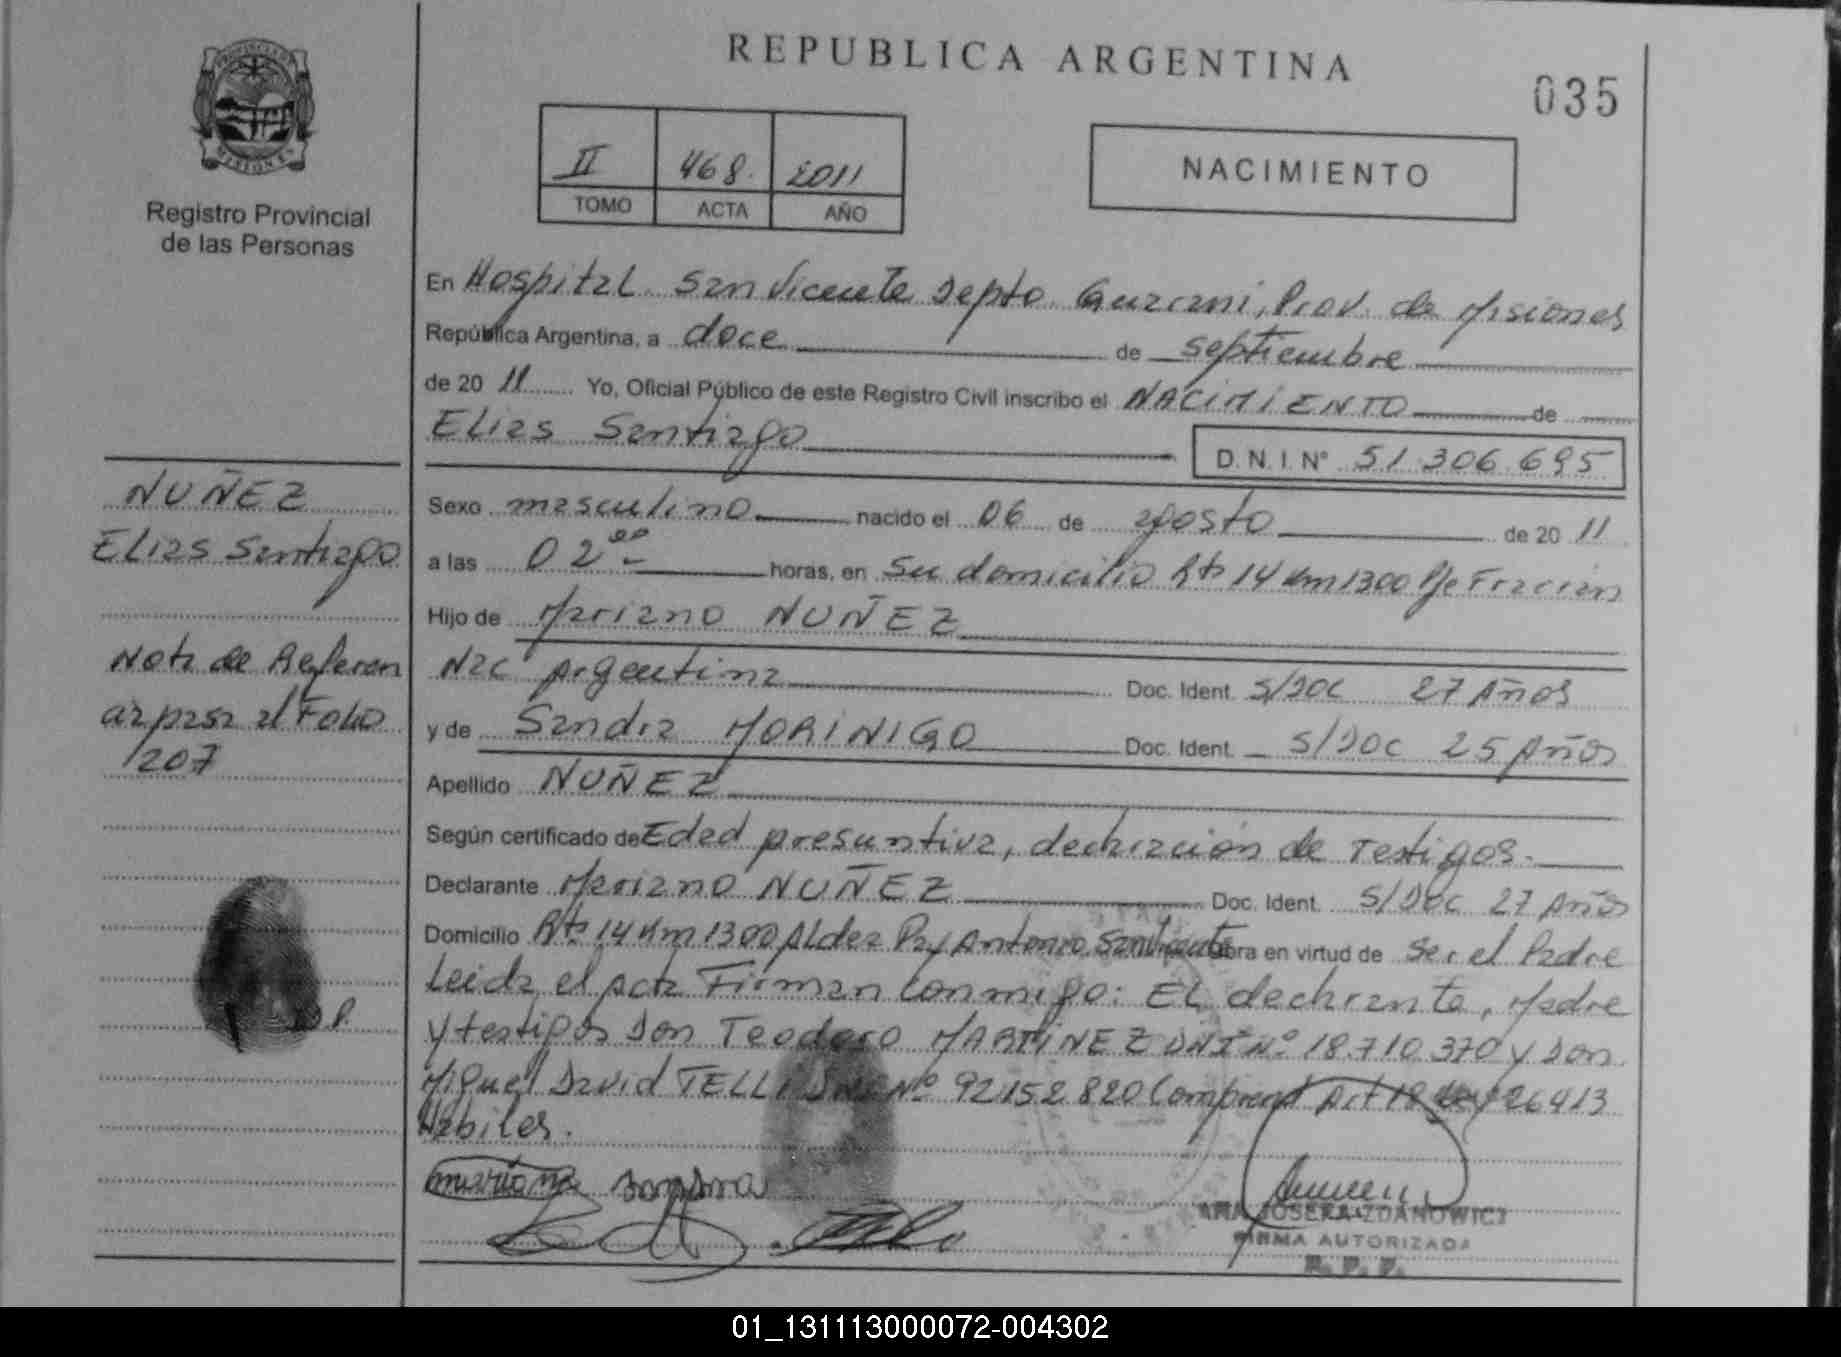 REPUBLICA ARGENTINA
035
PROVINCIA DE
MISIONES
Registro Provincial
de las Personas
II 468 2011
TOMO ACTA AÑO
NACIMIENTO
En Hospital San Vicente Depto Guarani, Prov. de Misiones
República Argentina, a doce de septiembre
de 2011 Yo, Oficial Público de este Registro Civil inscribo el NACIMIENTO de
Elias Santiago
D. N. I. Nº 51.306.695
Sexo masculino nacido el 06 de agosto de 2011
a las 02 00 horas, en Su domicilio Rta 14 Km 1300 Pje Fracran
Hijo de Mariano NUÑEZ
Nac Argentina Doc. Ident. S/DOC 27 Años
y de Sandra MORINIGO Doc. Ident. S/DOC 25 Años
Apellido NUÑEZ
Según certificado de Edad presuntiva, declaración de Testigos.
Declarante Mariano NUÑEZ Doc. Ident. S/Doc 27 Años
Domicilio Rta 14 Km 1300 Aldea Pay Antonio San Vicente obra en virtud de Ser el Padre
Leida el acta Firman Conmigo: El declarante, Madre
y testigos Don Teodoro MARTINEZ DNI Nº 18.710.370 y Don
Miguel David TELLI DNI Nº 92.152.820 Comprend Art 18 Ley 26413
Habiles.
mariano sandra
ANA JOSEFA ZDANOWICZ
FIRMA AUTORIZADA
R. P. P.
NUÑEZ
Elias Santiago
Nota de Referen
cia pasa al Folio
/207
I D P.
01_131113000072-004302